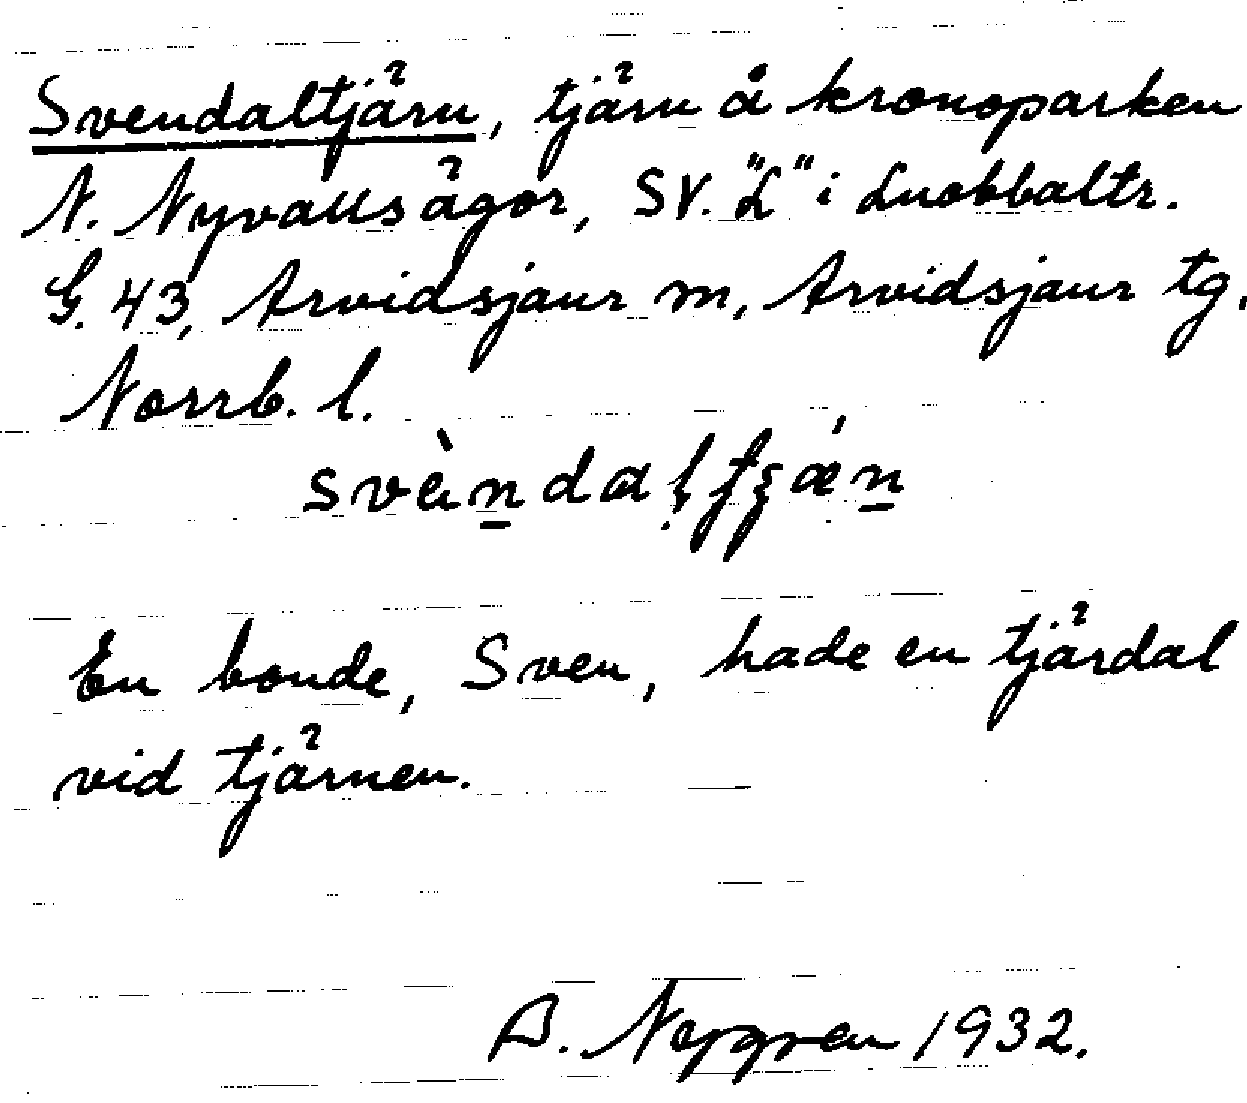 Svendaltjärn, tjärn å kronoparken
N. Nyvallsägor, SV. "L" i Luobbaltr.
G. 43, Arvidsjaur m, Arvidsjaur tg.
Norrb. l.
En bonde, Sven, hade en tjärdal
vid tjärnen.
A. Nygren 1932.